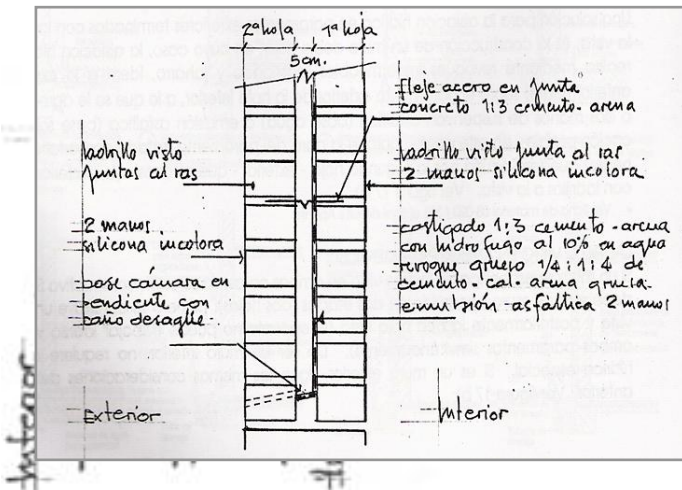 2ª hoja 1ª hoja
5cm.
fleje acero en junta
concreto 1:3 cemento-arena
ladrillo visto
juntas al ras
ladrillo visto junta al ras
2 manos silicona incolora
2 manos
silicona incolora
castigado 1:3 cemento-arena
con hidrofugo al 10% en agua
revoque grueso 1/4:1:4 de
cemento-cal-arena gruesa-
emulsión asfáltica 2 manos
base cámara en
pendiente con
caño desagüe
Exterior
Interior
Interior